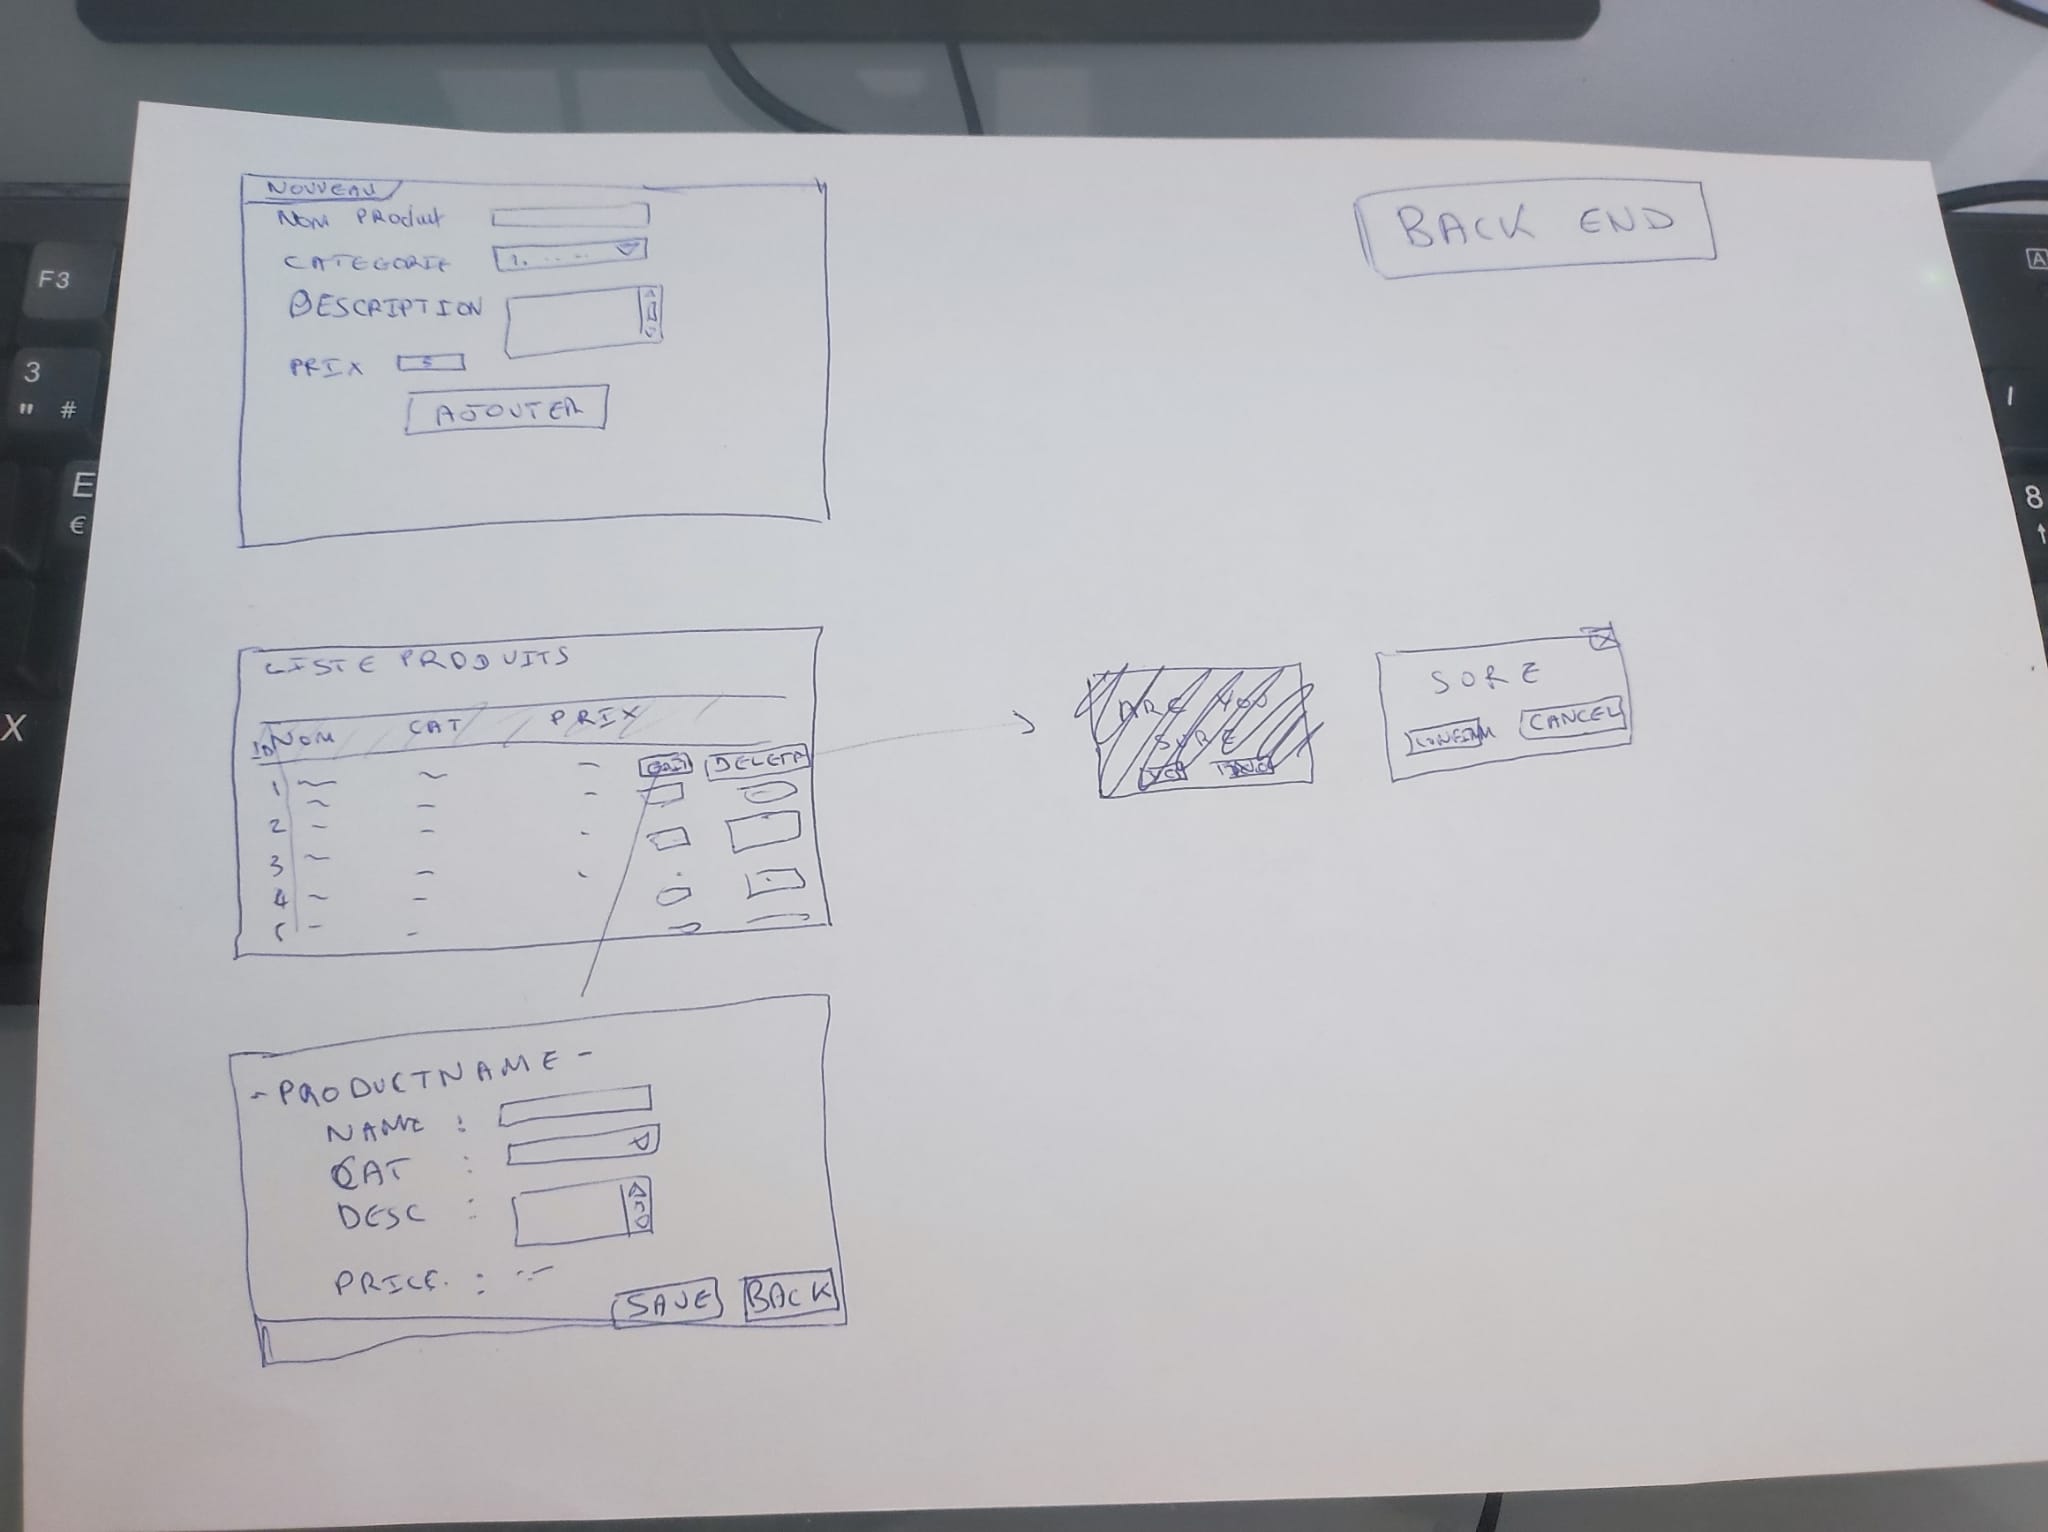 BACK END
NOUVEAU
NOM PRODUIT
CATEGORIE 1. ....
DESCRIPTION
PRIX 5
AJOUTER
LISTE PRODUITS
ID NOM CAT PRIX
EDIT DELETE
1
2
3
4
5
ARE YOU
SURE
YES
SURE
X
CONFIRM CANCEL
- PRODUCTNAME -
NAME :
CAT :
DESC :
PRICE. : --
SAVE BACK
F3
3
" #
E
€
X
A
I
8
↑